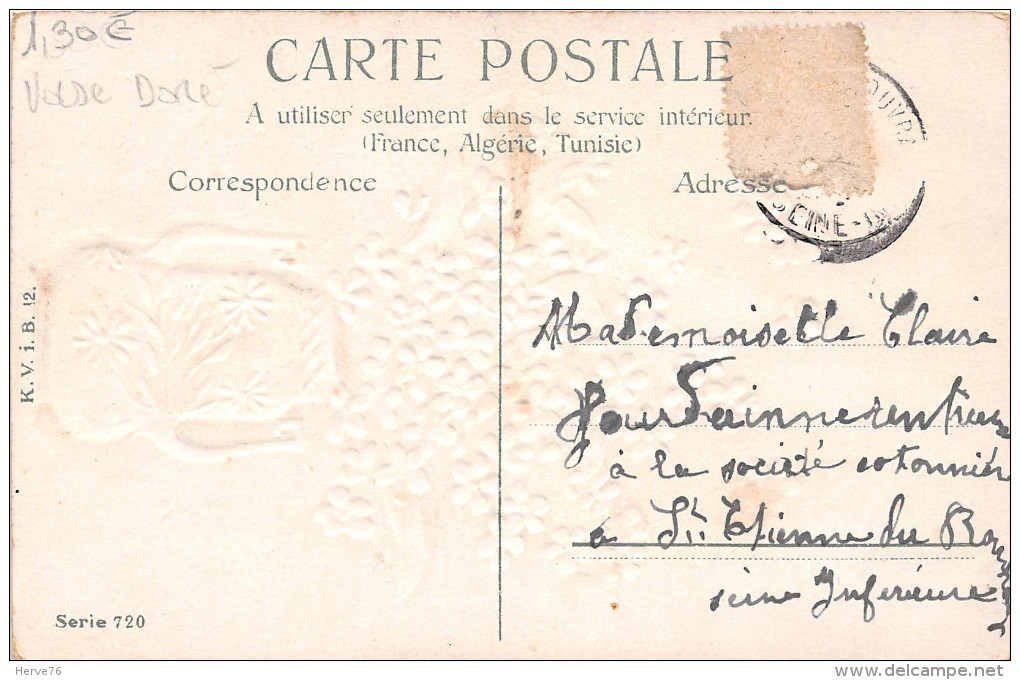 1,30€
Vase Doré
CARTE POSTALE
A utiliser seulement dans le service intérieur.
(France, Algérie, Tunisie)
Correspondence
Adresse
SEINE-IN
K.V.i.B. 12.
Mademoiselle Claire
à la société cotonnière
à St. Etienne du Rouvray
seine Inferieure
Serie 720
Herve76
www.delcampe.net